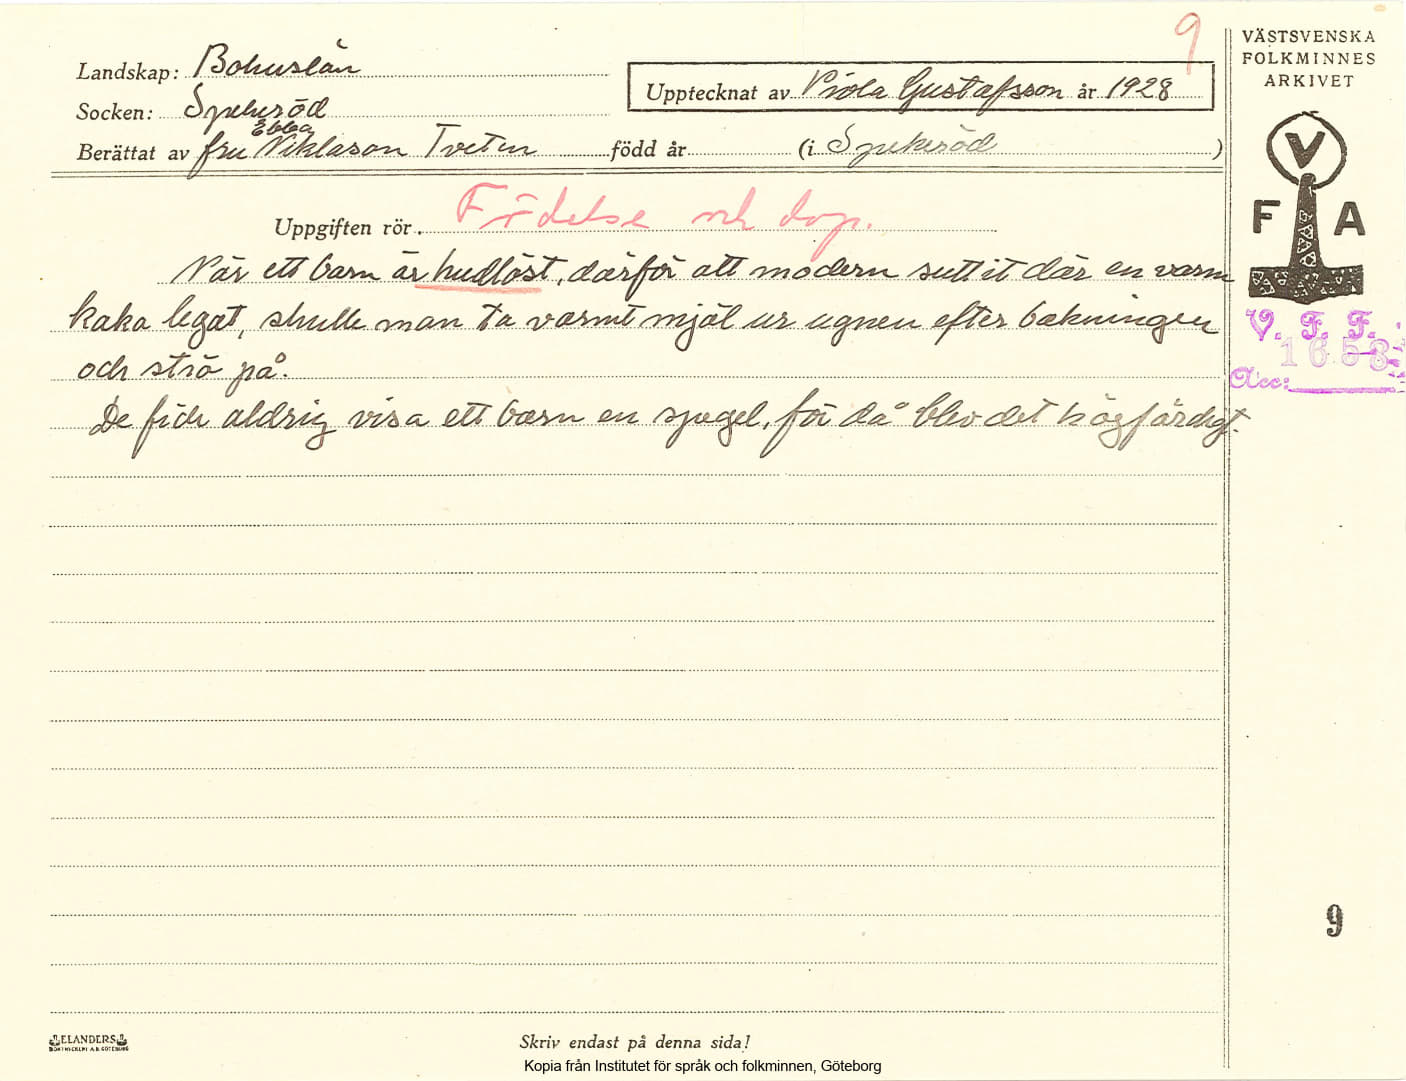 9
Landskap: Bohuslän
Socken: Spekeröd
Upptecknat av Viola Gustafsson år 1928
Ebba
Berättat av fru Niklason Tveten född år (i Spekeröd)
Uppgiften rör Födelse och dop.
När ett barn är hudlöst, därför att modern suttit där en varm
kaka legat, skulle man ta varmt mjöl ur ugnen efter bakningen
och strö på.
De fick aldrig visa ett barn en spegel, för då blev det högfärdigt.
VÄSTSVENSKA
FOLKMINNES
ARKIVET
V
F A
V. F. F.
1658
Acc:
9
ELANDERS
BOKTRYCKERI A.B. GÖTEBORG
Skriv endast på denna sida!
Kopia från Institutet för språk och folkminnen, Göteborg